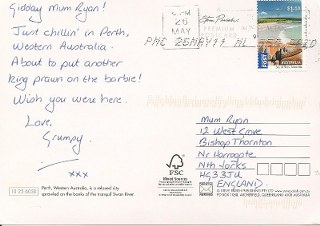 Gidday Mum Ryan!
Just chillin' in Perth,
Western Australia.
About to put another
king prawn on the barbie!
Wish you were here.
Love,
Grumpy
xxx
6 PM
26
MAY
$1.10
AUSTRALIA
Mum Ryan
12 West Grove
Bishop Thornton
Nr Harrogate
Nth Yorks
HG3 3JU
ENGLAND
FSC
Mixed Sources
Perth, Western Australia, is a relaxed city
sprawled on the banks of the tranquil Swan River.